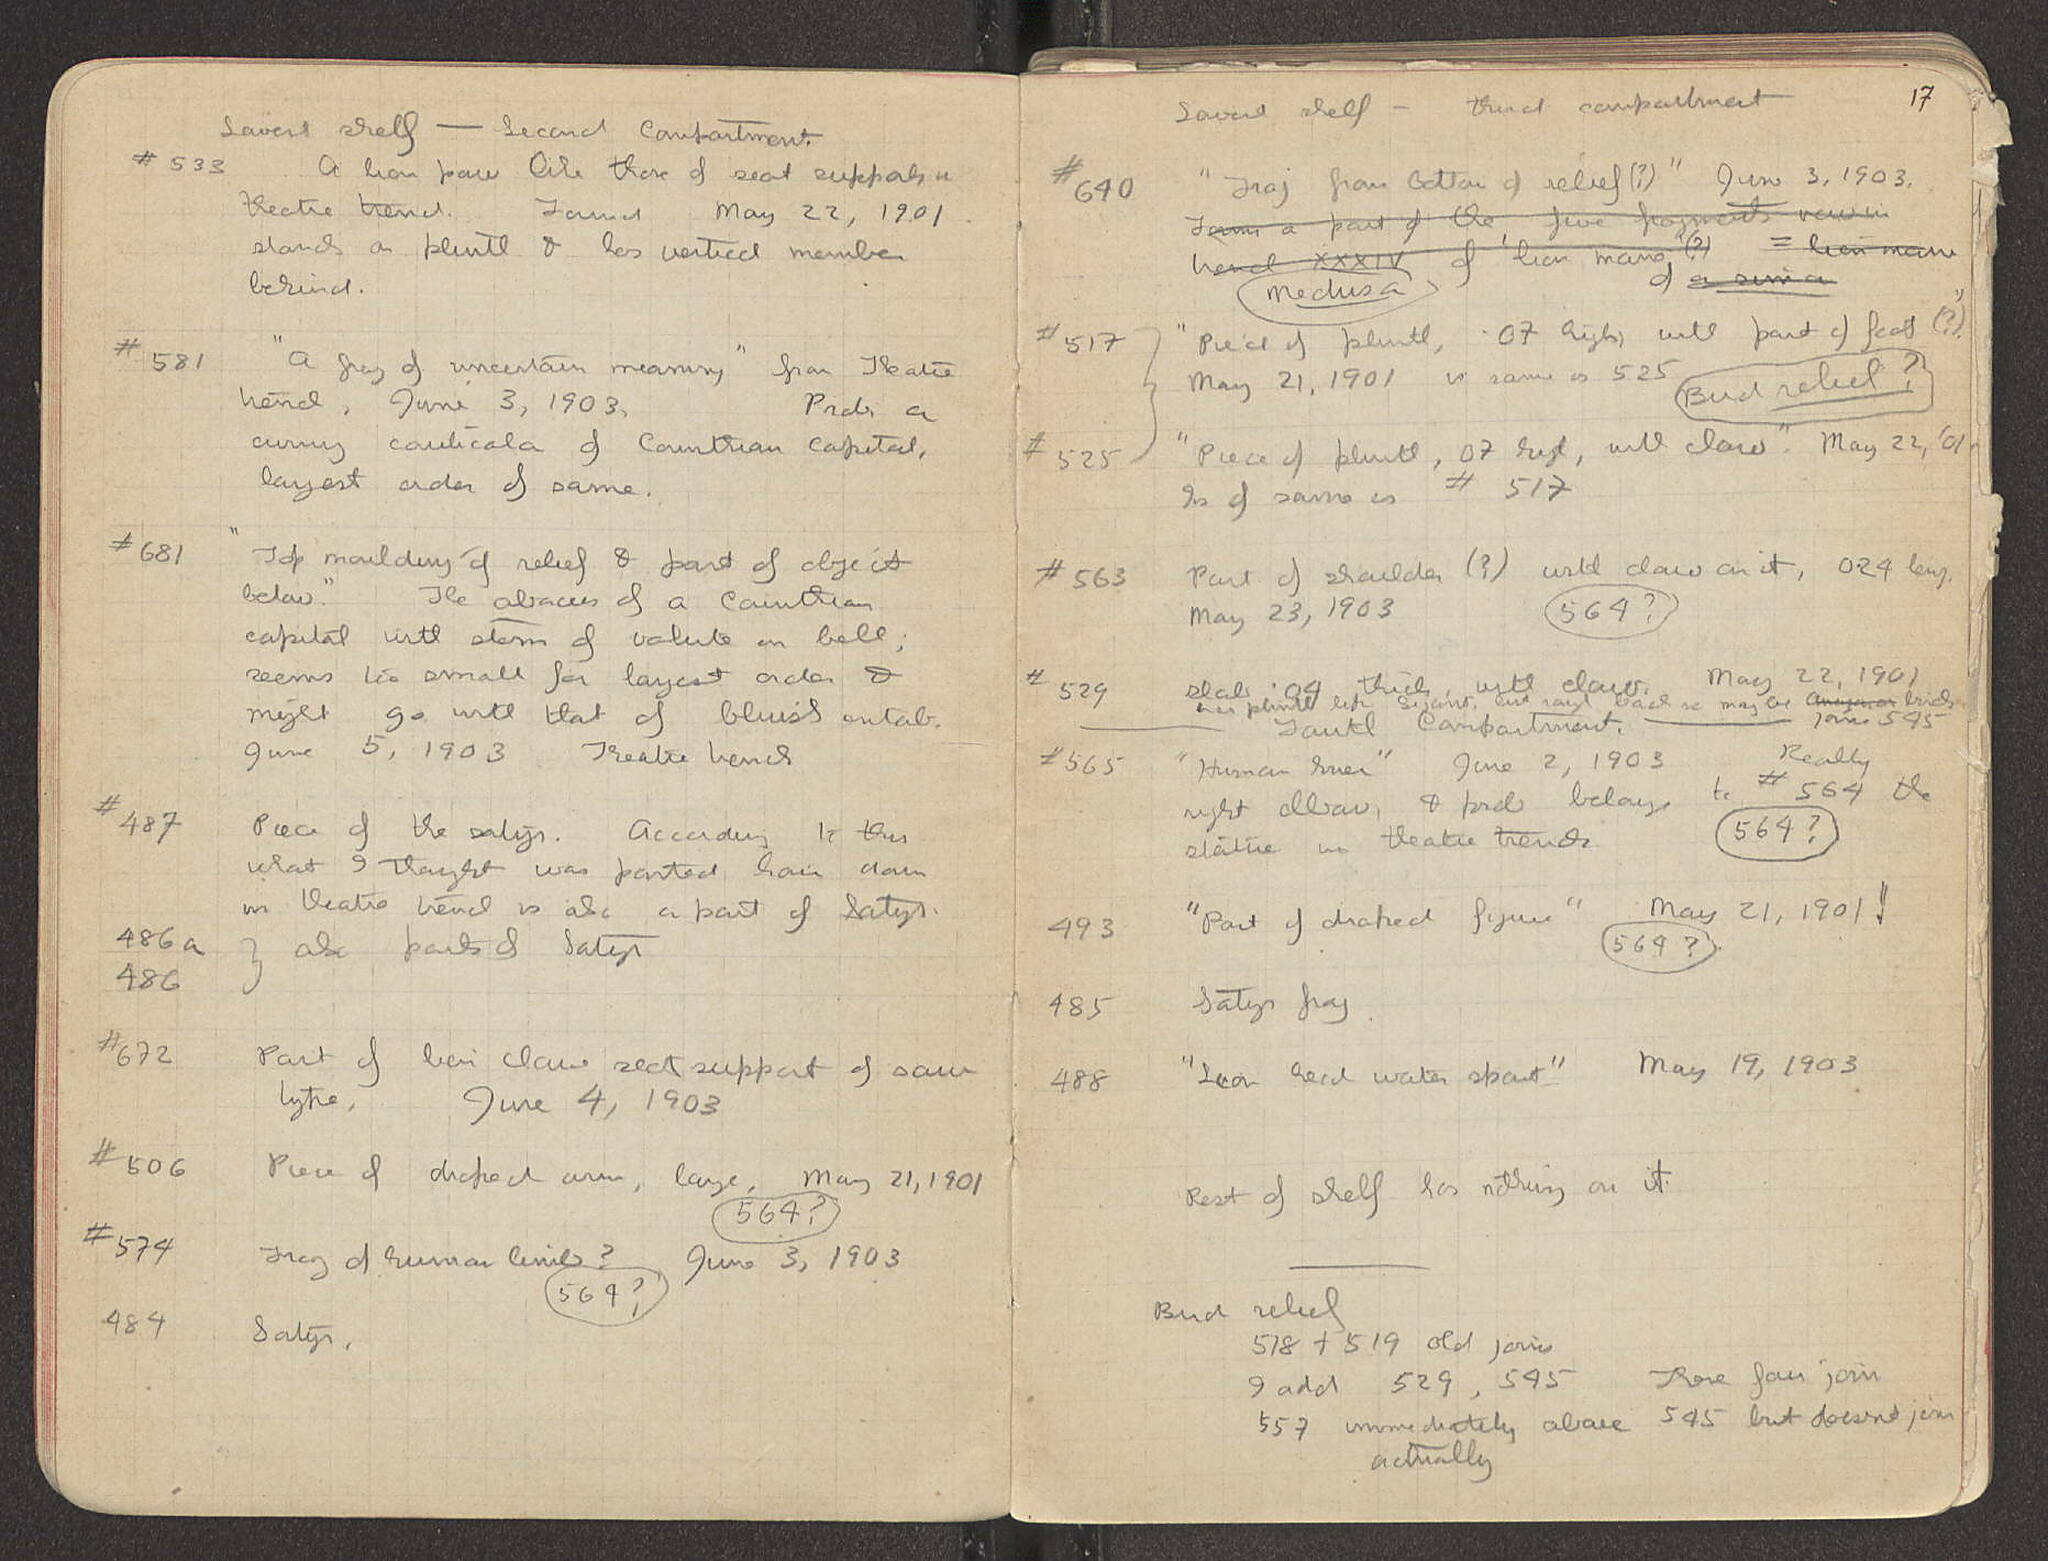 Lowest shelf — Second Compartment.
# 533 A lion paw like those of seat supports in
theatre trench. Found May 22, 1901.
stands on plinth & has vertical member
behind.
# 581 "A frag of uncertain meaning" from Theatre
trench, June 3, 1903. Prob. a
curving caulicola of Corinthian capital,
largest order of same.
# 681 "Top moulding of relief & part of object
below." The abacus of a Corinthian
capital with stem of volute on bell;
seems too small for largest order &
might go with that of bluish entab.
June 5, 1903 Theatre trench
# 487 Piece of the satyr. According to this
what I thought was parted hair down
in theatre trench is also a part of Satyr.
486a } also parts of Satyr
486
# 672 Part of lion claw seat support of same
type. June 4, 1903
# 506 Piece of draped arm, large, May 21, 1901
564?
# 574 Frag of human limb? June 3, 1903
564?
484 Satyr.
17
Lowest shelf — third compartment
# 640 "Frag from bottom of relief (?)" June 3, 1903.
a part of the five fragments
trench XXXIV of 'lion mane' (?) = lion mane
of a sima
Medusa
# 517 } "Piece of plinth, .07 high, with part of foot (?)"
May 21, 1901 is same as 525 Bird relief?
# 525 "Piece of plinth, 07 high, with claw". May 22, '01
Is of same as # 517
# 563 Part of shoulder (?) with claw on it, 024 long.
May 23, 1903 564?
# 529 slab .04 thick, with claw. May 22, 1901
has plinth like but back so may be bird
joins 545
Fourth Compartment.
# 565 "Human knee" June 2, 1903 Really
right elbow, & prob belongs to # 564 the
statue in theatre trench 564?
493 "Part of draped figure" May 21, 1901!
564?
485 Satyr frag.
488 "Lion head water spout" May 19, 1903
Rest of shelf has nothing on it.
Bird relief
518 + 519 old joins
I add 529, 545 These four join
557 immediately above 545 but doesn't join
actually